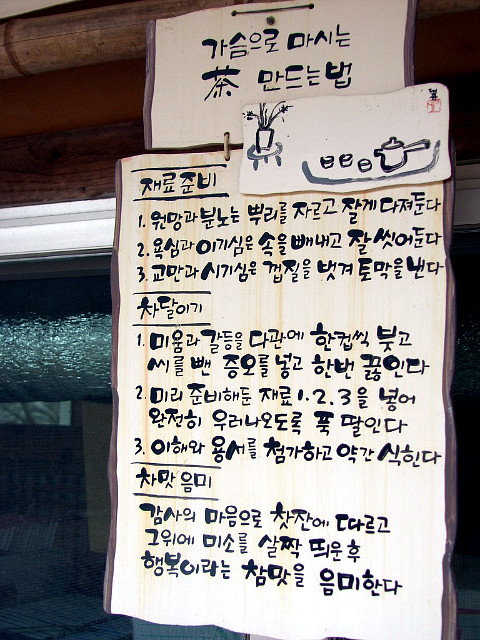 가슴으로 마시는
茶 만드는 법
재료준비
1. 원망과 분노는 뿌리를 자르고 잘게 다져둔다
2. 욕심과 이기심은 속을 빼내고 잘 씻어둔다
3. 교만과 시기심은 껍질을 벗겨 토막을 낸다
차달이기
1. 미움과 갈등을 다관에 한컵씩 붓고
씨를 뺀 증오를 넣고 한번 끓인다
2. 미리 준비해둔 재료 1.2.3을 넣어
완전히 우러나오도록 푹 딸인다
3. 이해와 용서를 첨가하고 약간 식힌다
차맛 음미
감사의 마음으로 찻잔에 따르고
그위에 미소를 살짝 띄운후
행복이라는 참맛을 음미한다